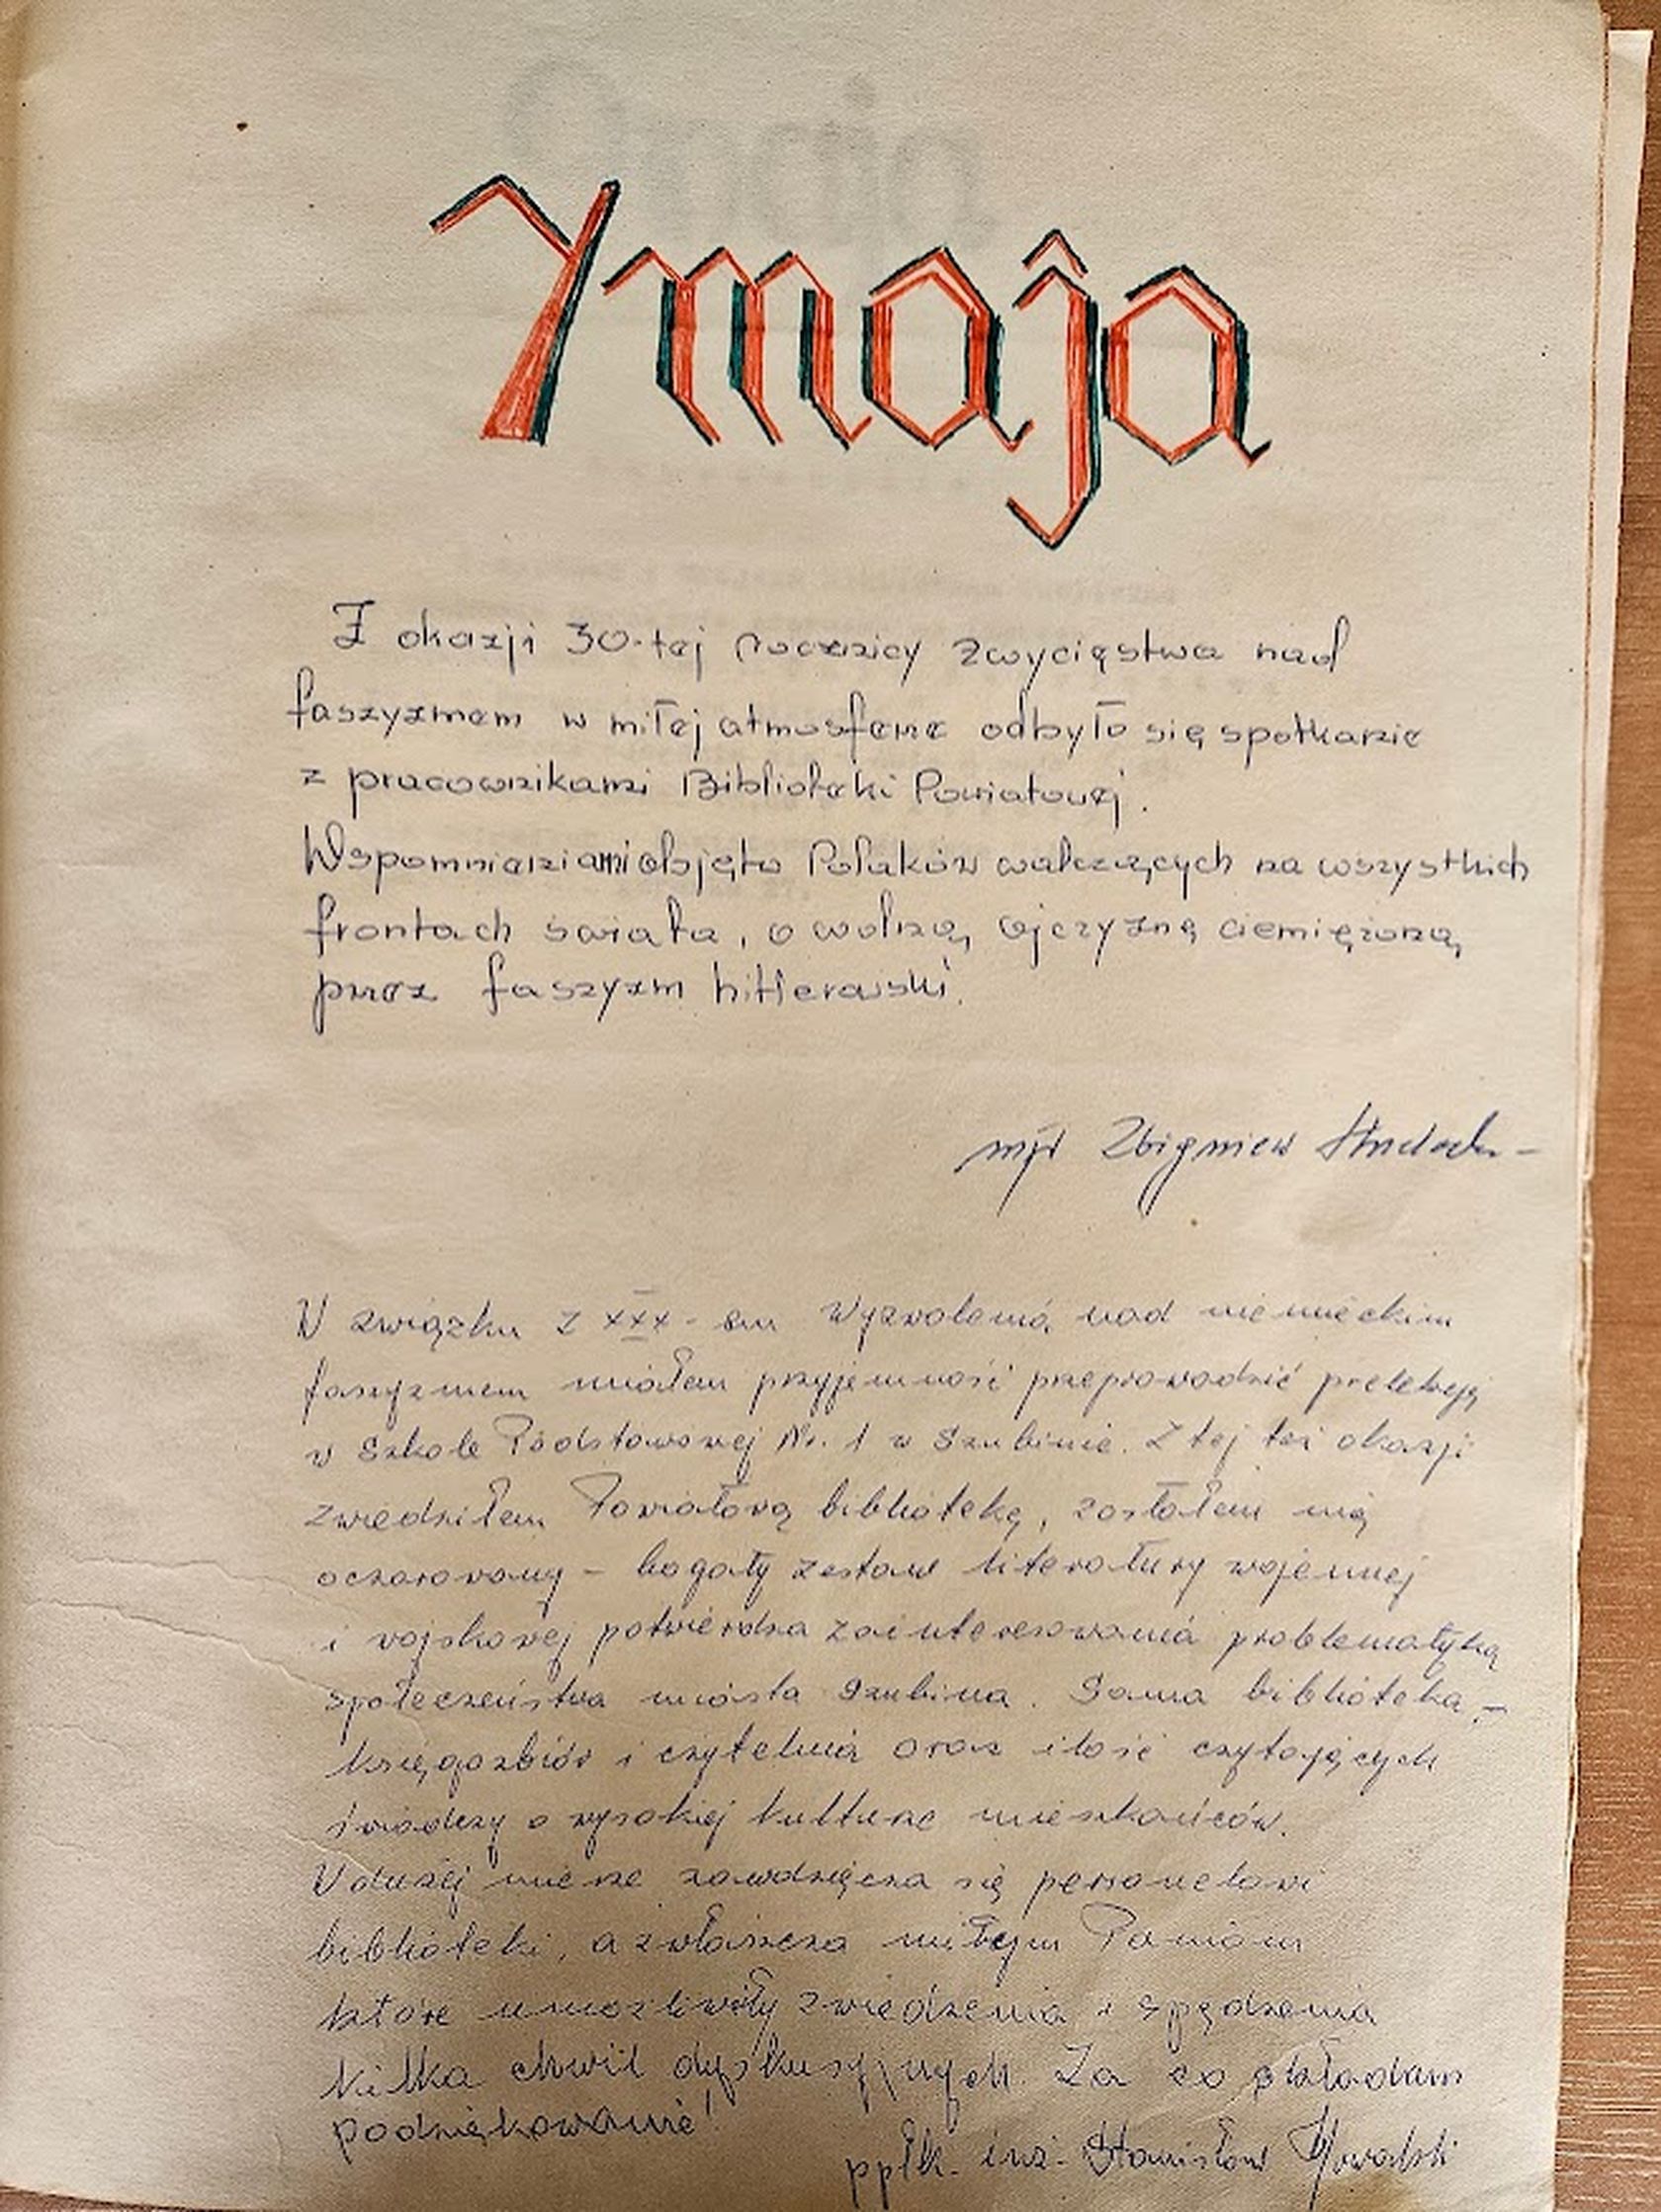 7 maja
Z okazji 30-tej rocznicy zwycięstwa nad
faszyzmem w miłej atmosferze odbyło się spotkanie
z pracownikami Biblioteki Powiatowej.
Wspomnieniami objęto Polaków walczących na wszystkich
frontach świata, o wolną, ojczyznę ciemiężoną,
przez faszyzm hitlerowski.
mjr Zbigniew
W związku z XXX-em Wyzwolenia nad niemieckim
faszyzmem miałem przyjemność przeprowadzić prelekcję
w Szkole Podstawowej Nr. 1 w Szubinie. Z tej też okazji
zwiedziłem Powiatową bibliotekę, zostałem nią
oczarowany - bogaty zestaw literatury wojennej
i wojskowej potwierdza zainteresowania problematyką
społeczeństwa miasta Szubina. Sama biblioteka, -
księgozbiór i czytelnia oraz ilość czytających
świadczy o wysokiej kulturze mieszkańców.
W dużej mierze zawdzięcza się personelowi
biblioteki, a zwłaszcza miłym Paniom
które umożliwiły zwiedzenia i spędzenia
kilka chwil dyskusyjnych. Za co składam
podziękowanie!
ppłk. inż. Stanisław Kowalski